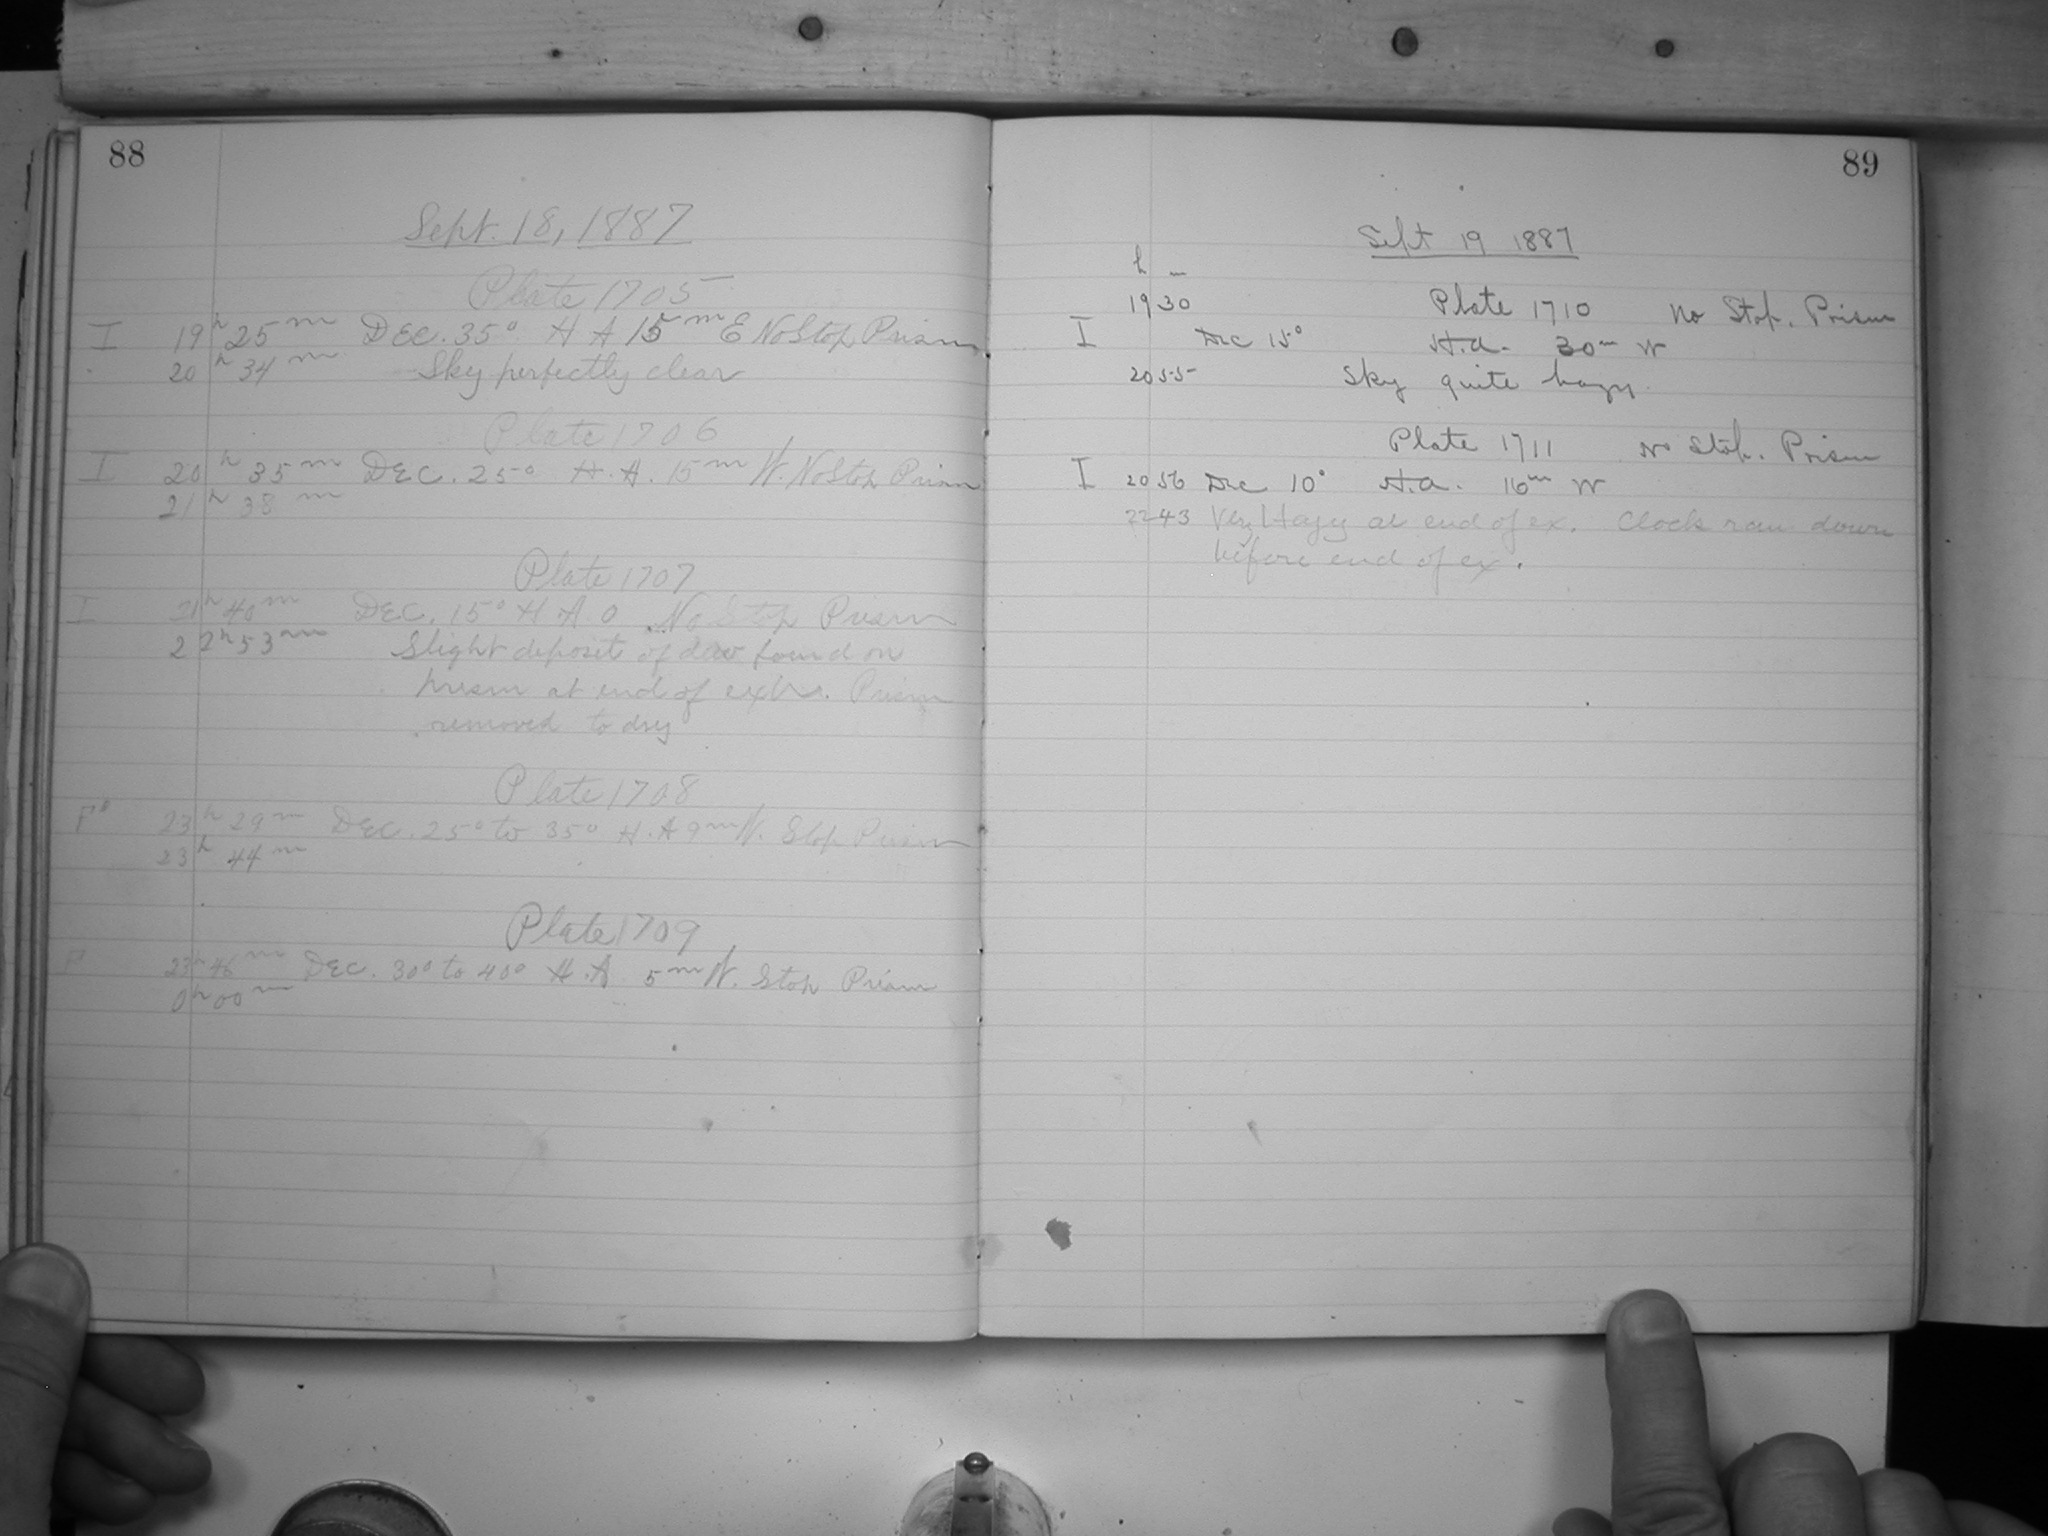 88
Sept. 18, 1887
Plate 1705
I 19h 25m Dec. 35° H A 15m E No Stop Prism
20h 34m Sky perfectly clear
Plate 1706
I 20h 35m Dec. 25° H.A. 15m W. No Stop Prism
21h 38m
Plate 1707
I 21h 40m Dec. 15° H A 0 No Stop Prism
22h 53m Slight deposit of dew found on
prism at end of Prism
removed to dry
Plate 1708
23h 29m Dec. 25° to 35° H.A 9m W. Stop Prism
23h 44m
Plate 1709
23h 46m Dec. 30° to 40° H.A 5m W. Stop Prism
0h 00m
89
Sept 19 1887
h m
19 30 Plate 1710 No Stop. Prism
I Dec 15° H.a. 30m W
20 55 Sky quite hazy.
Plate 1711 No Stop. Prism
I 20 56 Dec 10° H.a. 16m W
22 43 Very Hazy at end of ex. Clock ran down
before end of ex.